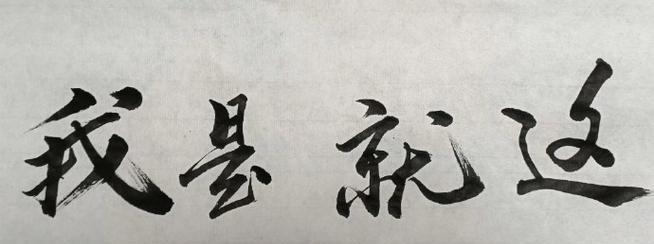 这就是我